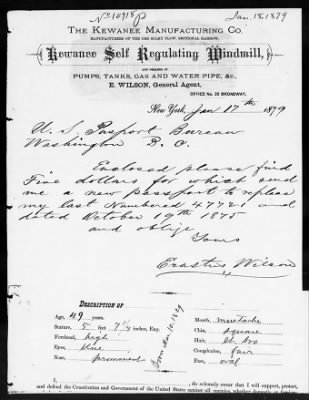 No 10918 P
Jan. 18. 1879
THE KEWANEE MANUFACTURING CO.
Kewanee Self Regulating Windmill,
AND DEALERS IN
PUMPS, TANKS, GAS AND WATER PIPE, &c.,
E. WILSON, General Agent,
OFFICE No. 35 BROADWAY,
New York, Jan 17th 1879
U. S. Pasport Bureau
Washington D. C.
Enclosed please find
Five dollars for which send
me a new passport to replace
my last Numbered 47721 and
dated October 19th 1875
and oblige
Yours
Erastus Wilson
DESCRIPTION OF
Age, 49 years.
Stature, 5 feet 7 1/2 inches, Eng.
Forehead, high
Eyes, blue
Nose, prominent
Mouth, moustache
Chin, square
Hair, dk. bro
Complexion, fair
Face, oval
I, do solemnly swear that I will support, protect,
and defend the Constitution and Government of the United States against all enemies, whether domestic or foreign